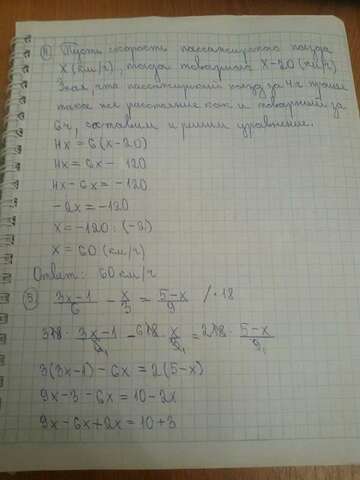 4) Пусть скорость пассажирского поезда
x (км/ч), тогда товарного x-20 (км/ч)
Зная, что пассажирский поезд за 4 ч прошел
такое же расстояние как и товарный за
6 ч, составим и решим уравнение.
4x = 6(x-20)
4x = 6x - 120
4x - 6x = -120
-2x = -120
x = -120 : (-2)
x = 60 (км/ч)
Ответ: 60 км/ч
5) (3x-1)/6 - x/3 = (5-x)/9 /·18
3 18 · (3x-1)/6 1 - 6 18 · x/3 1 = 2 18 · (5-x)/9 1
3(3x-1) - 6x = 2(5-x)
9x - 3 - 6x = 10 - 2x
9x - 6x + 2x = 10 + 3